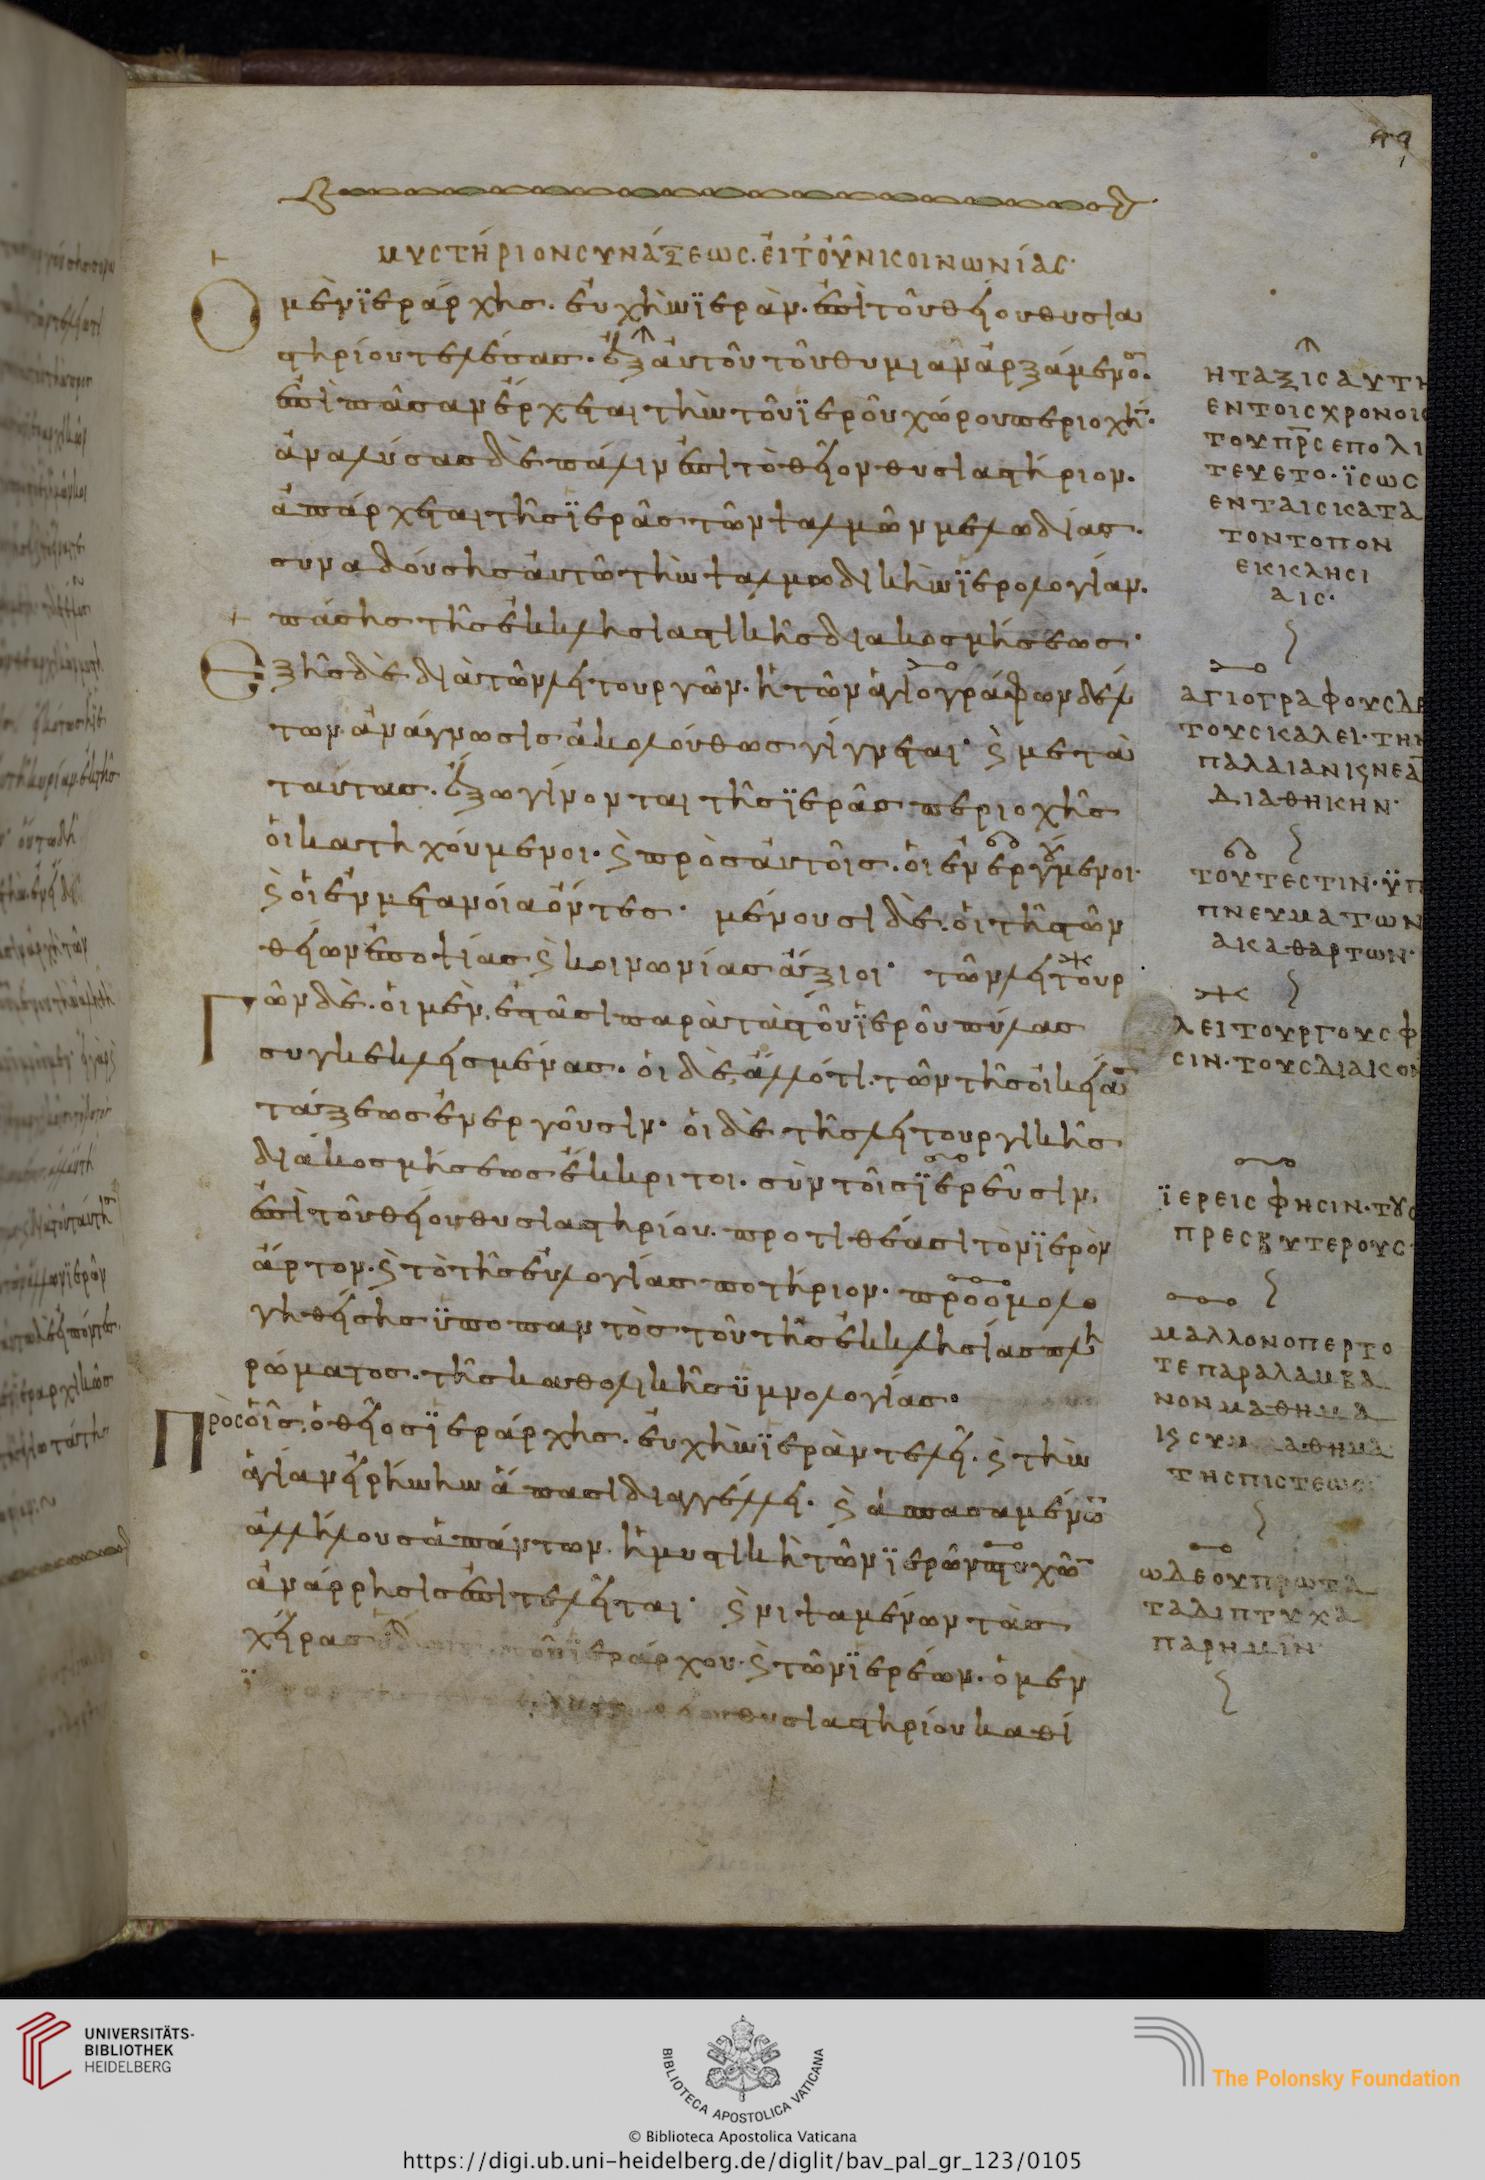 ΜΥΣΤΉΡΙΟΝ ΣΥΝΆΞΕΩΣ. ΕἸΤΟΥ͂Ν ΚΟΙΝΩΝΊΑΣ·
Ὁ μὲν ϊεράρχης. εὐχὴν ϊερὰν. ἐπὶ τοῦ θείου θυσια
στηρίου τελέσας. ἐξ αὐτοῦ τοῦ θυμιᾶν ἀρξάμενος.
ἐπὶ πᾶσαν ἔρχεται τὴν τοῦ ϊεροῦ χώρου περιοχήν.
ἀναλύσας δὲ πάλιν ἐπὶ τὸ θεῖον θυσιαστήριον.
ἀπάρχεται τῆς ϊερᾶς τῶν ψαλμῶν μελωδίας.
συναδούσης αὐτῶ τὴν ψαλμωδικὴν ϊερολογίαν.
πάσης τῆς ἐκκλησιαστικῆς διακοσμήσεως·
Ἑξῆς δὲ διὰ τῶν λειτουργῶν. ἡ τῶν ἁγιογράφων δέλ
των ἀνάγνωσις ἀκολούθως γίγνεται· ϗ μετὰ
ταύτας. ἔξω γίνονται τῆς ϊερᾶς περιοχῆς
οἱ κατηχούμενοι. ϗ πρὸς αὐτοῖς. οἱ ἐνεργούμενοι.
ϗ οἱ ἐν μετανοία ὄντες· μένουσι δὲ. οἱ τῆς τῶν
θείων ἐποψίας ϗ κοινωνίας ἄξιοι· τῶν λειτουρ
Γῶν δὲ. οἱ μὲν, ἑστᾶσι παρὰ τὰς τοῦ ϊεροῦ πύλας
συγκεκλεισμένας. οἱ δὲ, ἄλλό τι. τῶν τῆς οἰκείας
τάξεως ἐνεργοῦσιν· οἱ δὲ τῆς λειτουργικῆς
διακοσμήσεως ἔκκριτοι. σὺν τοῖς ϊερεῦσιν,
ἐπὶ τοῦ θείου θυσιαστηρίου. προτιθέασι τὸν ϊερὸν
ἄρτον. ϗ τὸ τῆς εὐλογίας ποτήριον. προομολο
γηθείσης ϋπο παντὸς τοῦ τῆς ἐκκλησίας πλη
ρώματος. τῆς καθολικῆς ϋμνολογίας·
Πρὸς οἷς, ὁ θεῖος ϊεράρχης. εὐχὴν ϊερὰν τελεῖ. ϗ τὴν
ἁγίαν εἰρήνην ἅπασι διαγγέλλει. ϗ ἀσπασαμένων
ἀλλήλους ἁπάντων. ἡ μυστικὴ τῶν ϊερῶν πτυχῶν
ἀνάρρησις ἐπιτελεῖται· ϗ νιψαμένων τὰς
χεῖρας τοῦ ϊεράρχου. ϗ τῶν ϊερέων. ὁ μὲν
θυσιαστηρίου καθί
Η ΤΑΞΙΣ ΑΥΤΗ
ΕΝ ΤΟΙΣ ΧΡΟΝΟΙΣ
ΤΟΥ ΠΡΣ ΕΠΟΛΙ
ΤΕΥΕΤΟ· ΪΣΩΣ
ΕΝ ΤΑΙΣ ΚΑΤΑ
ΤΟΝ ΤΟΠΟΝ
ΕΚΚΛΗΣΙ
ΑΙΣ·
ΑΓΙΟΓΡΑΦΟΥΣ ΔΕ
ΤΟΥΣ ΚΑΛΕΙ· ΤΗΝ
ΠΑΛΑΙΑΝ ΚϚ ΝΕΑΝ
ΔΙΑΘΗΚΗΝ·
ΤΟΥΤΕΣΤΙΝ· ΫΠ
ΠΝΕΥΜΑΤΩΝ
ΑΚΑΘΑΡΤΩΝ·
ΛΕΙΤΟΥΡΓΟΥΣ Φ
ΣΙΝ· ΤΟΥΣ ΔΙΑΚΟΝ
ΪΕΡΕΙΣ ΦΗΣΙΝ· ΤΟΥΣ
ΠΡΕΣΒΥΤΕΡΟΥΣ·
ΜΑΛΛΟΝ ΟΠΕΡ ΤΟ
ΤΕ ΠΑΡΑΛΑΜΒΑ
ΝΟΝ ΜΑΘΗΜΑ
ΤΗΣ ΠΙΣΤΕΩΣ·
ΩΔΕ ΟΥ ΠΡΩΤΑ
ΤΑ ΔΙΠΤΥΧΑ
ΠΑΡ ΗΜΙΝ·
UNIVERSITÄTS-
BIBLIOTHEK
HEIDELBERG
BIBLIOTECA APOSTOLICA VATICANA
The Polonsky Foundation
© Biblioteca Apostolica Vaticana
https://digi.ub.uni-heidelberg.de/diglit/bav_pal_gr_123/0105